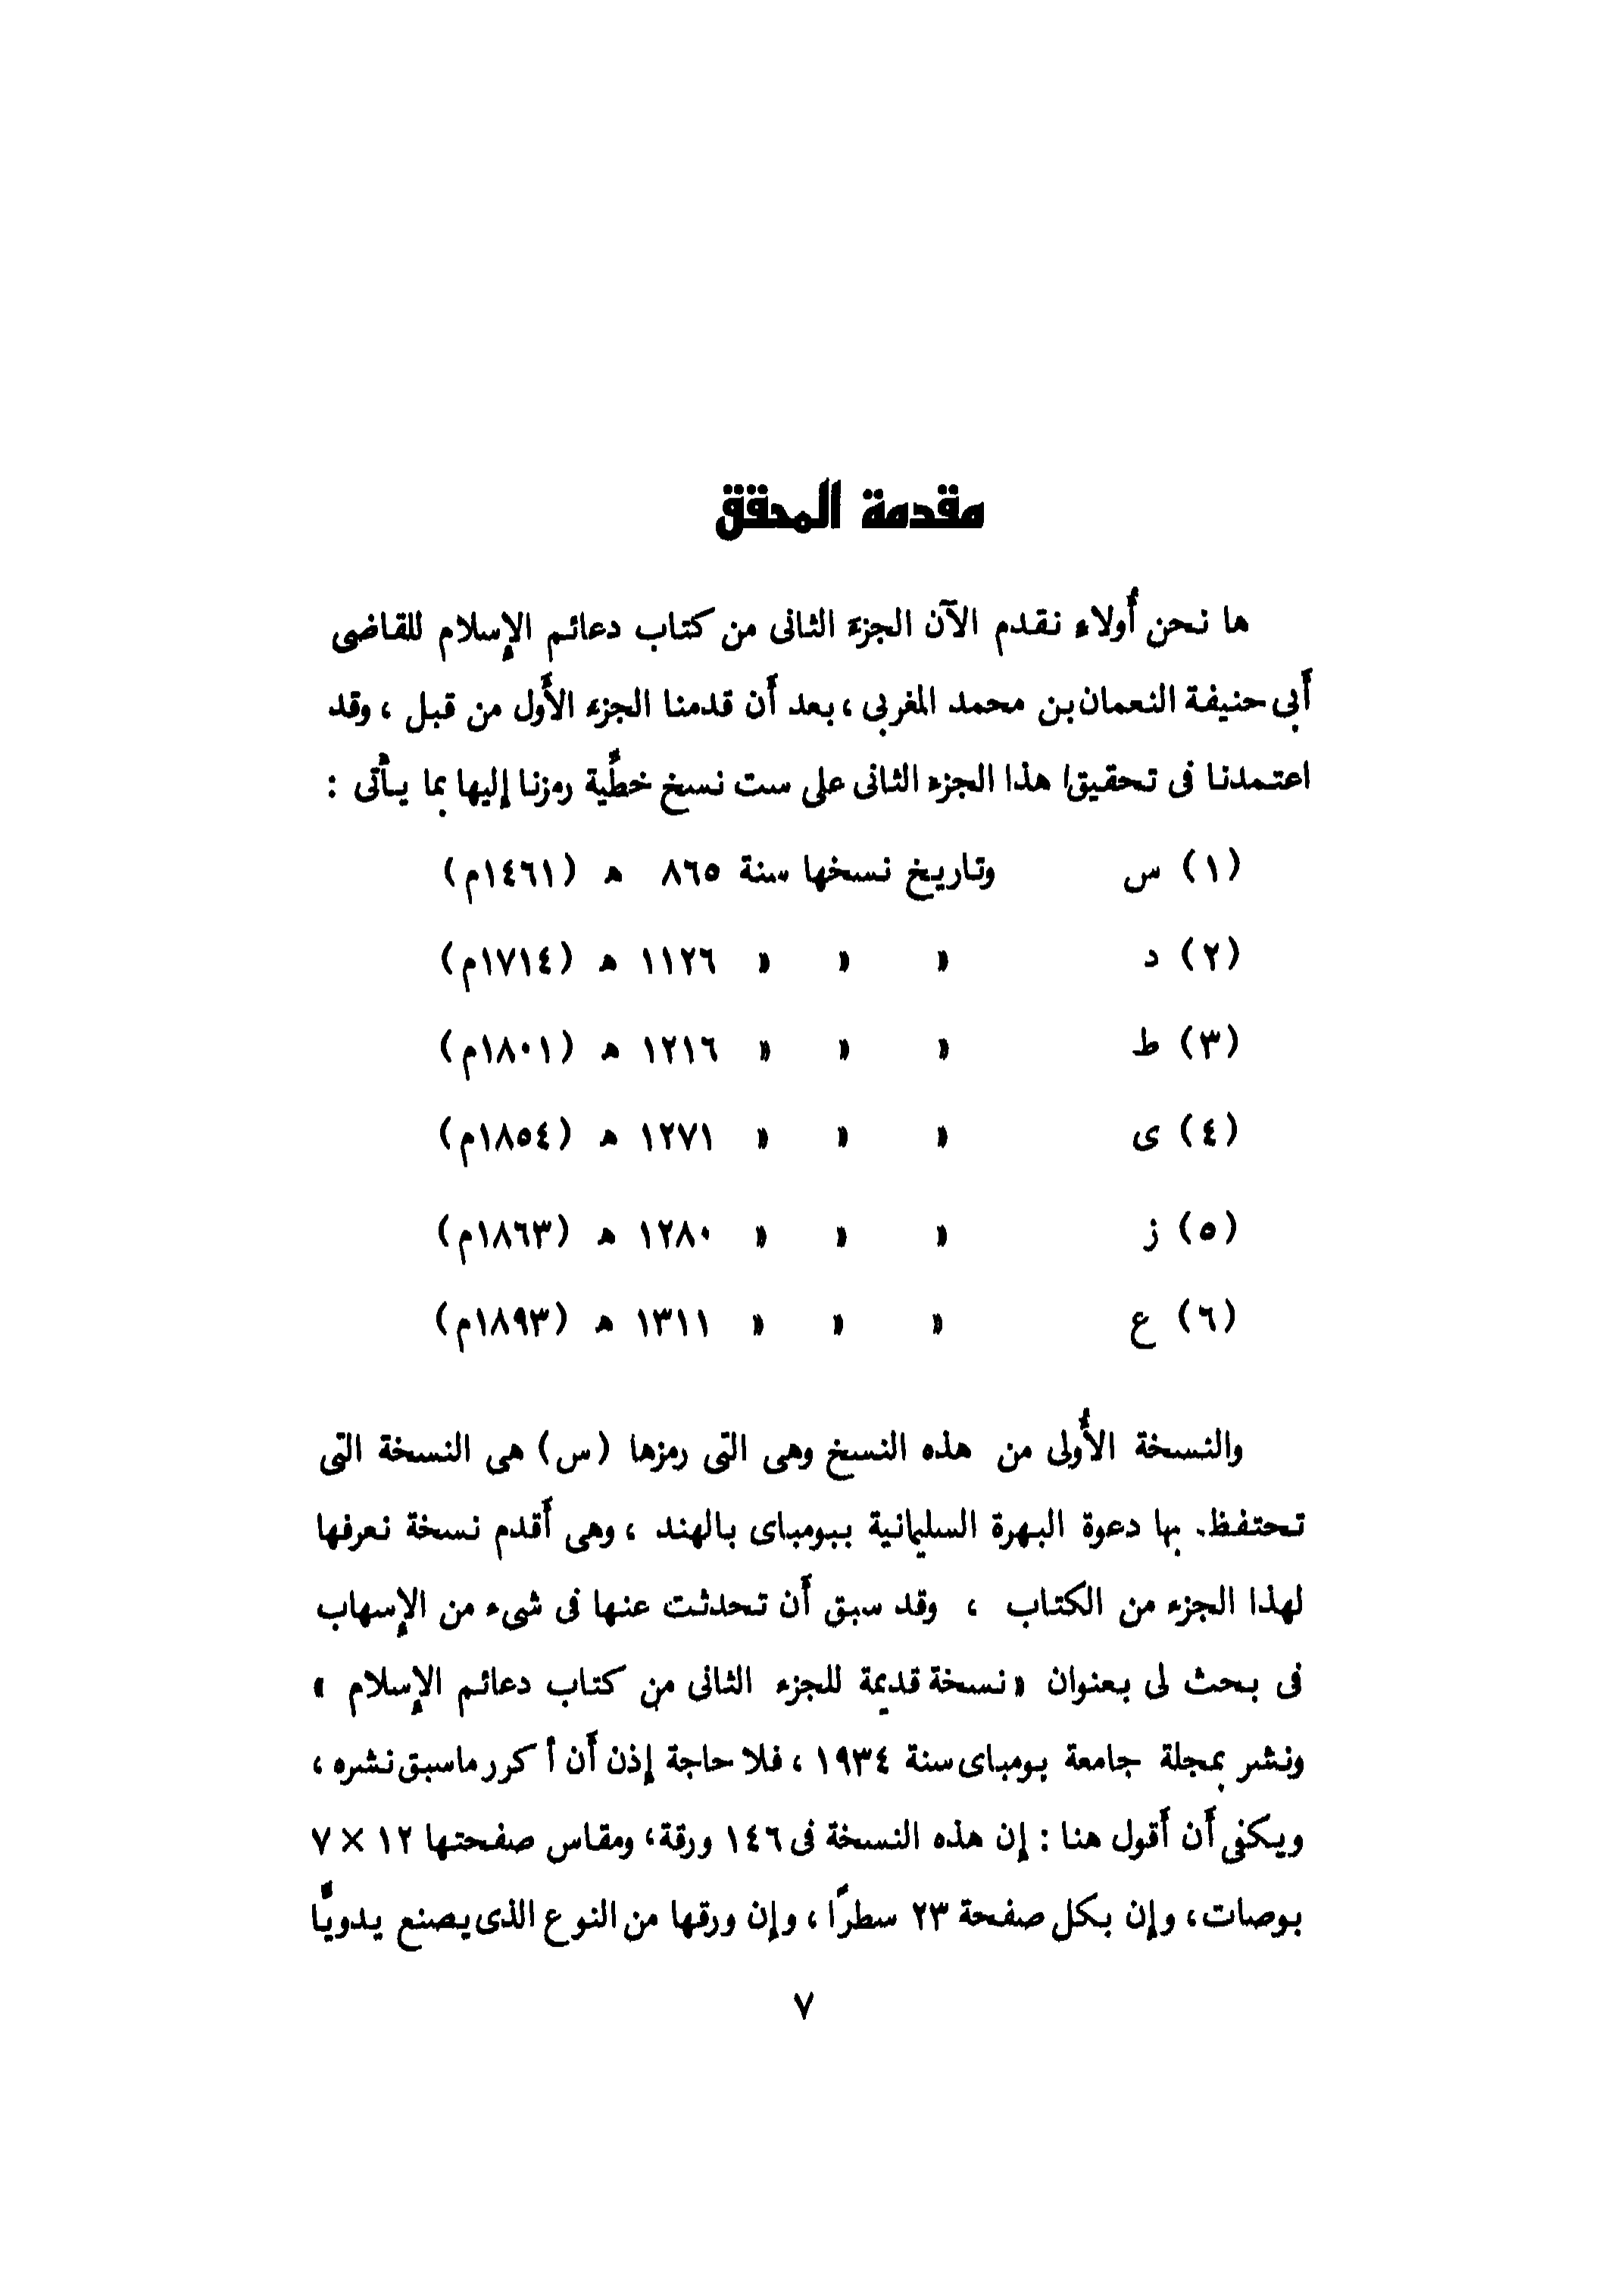 مقدمة المحقق
ها نحن أُولاء نقدم الآن الجزءَ الثانى من كتاب دعائم الإسلام للقاضى
أَبى حنيفة النعمان بن محمد المغربى ، بعد أَن قدمنا الجزء الأَول من قبل ، وقد
اعتمدنا فى تحقيق هذا الجزء الثانى على ست نسخ خطِّية رمزنا إليها بما يأْتى :
(١) س وتاريخ نسخها سنة ٨٦٥ ه (١٤٦١م)
(٢) د » » » ١١٢٦ ه (١٧١٤م)
(٣) ط » » » ١٢١٦ ه (١٨٠١م)
(٤) ى » » » ١٢٧١ ه (١٨٥٤م)
(٥) ز » » » ١٢٨٠ ه (١٨٦٣م)
(٦) ع » » » ١٣١١ ه (١٨٩٣م)
والنسخة الأُولى من هذه النسخ وهى التى رمزها (س) هى النسخة التى
تحتفظ. بها دعوة البهرة السليمانية ببومباى بالهند ، وهى أَقدم نسخة نعرفها
لهذا الجزء من الكتاب ، وقد سبق أَن تحدثت عنها فى شىء من الإسهاب
فى بحث لى بعنوان « نسخة قديمة للجزء الثانى من كتاب دعائم الإسلام »
ونشر بمجلة جامعة بومباى سنة ١٩٣٤ ، فلا حاجة إذن أَن أكرر ماسبق نشره ،
ويكفى أَن أَقول هنا : إن هذه النسخة فى ١٤٦ ورقة، ومقاس صفحتها ١٢ × ٧
بوصات، وإن بكل صفحة ٢٣ سطرًا ، وإن ورقها من النوع الذى يصنع يدويًّا
٧